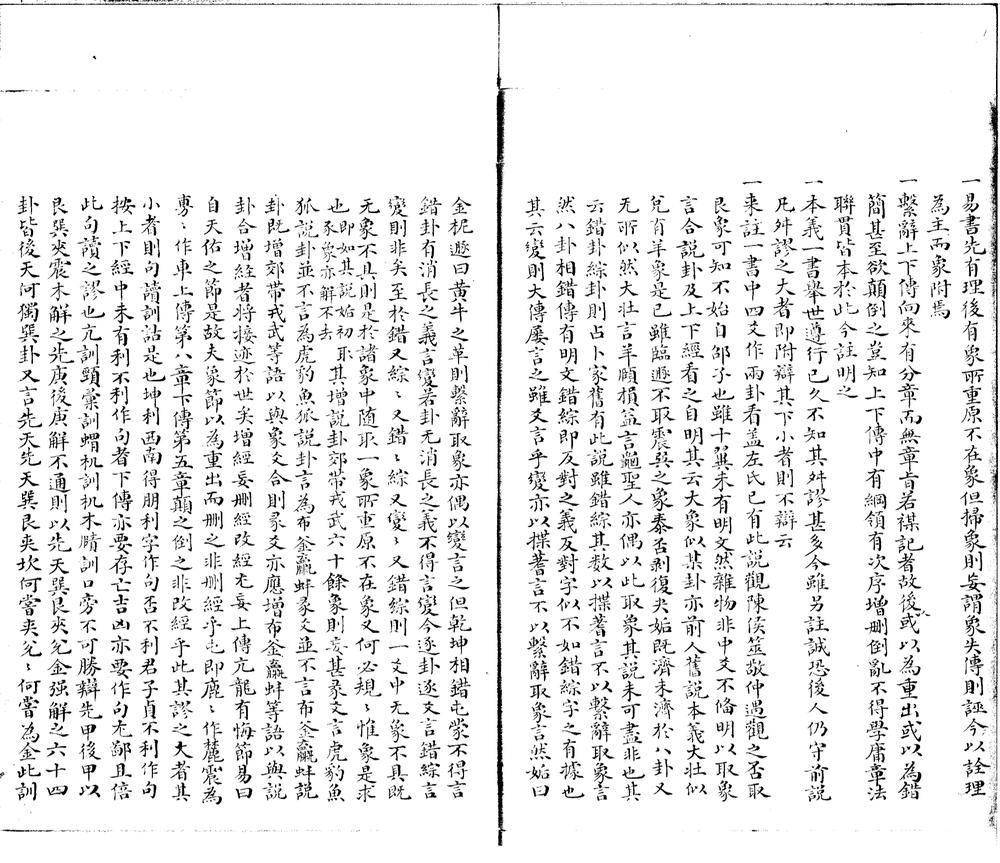 一易書先有理後有象所重原不在象但掃象則妄謂象失傳則誣今以詮理
為主而象附焉
一繫辭上下傳向來有分章而無章旨若襍記者故後人或以為重出或以為錯
簡甚至欲顛倒之豈知上下傳中有綱領有次序增刪倒亂不得學庸章法
聯貫皆本於此今註明之
一本義一書舉世遵行已久不知其舛謬甚多今雖另註誠恐後人仍守前說
凡舛謬之大者即附辯其下小者則不辯云
一來註一書中四爻作兩卦看蓋左氏已有此說觀陳侯筮敬仲遇觀之否取
艮象可知不始自邹子也雖十翼未有明文然雜物非中爻不俻明以取象
言合說卦及上下經看之自明其云大象似某卦亦前人舊說本義大壯似
兌有羊象是已雖臨遯不取震巽之象泰否剝復夬姤既濟未濟於八卦又
无所似然大壮言羊頤損益言龜聖人亦偶以此取象其說未可盡非也其
云錯卦綜卦則占卜家舊有此說雖錯綜其数以揲蓍言不以繫辭取象言
然八卦相錯傳有明文錯綜即反對之義反對字似不如錯綜字之有據也
其云變則大傳屢言之雖爻言乎變亦以揲蓍言不以繫辭取象言然姤曰
金柅遯曰黄牛之革則繫辭取象亦偶以變言之但乾坤相錯屯蒙不得言
錯卦有消長之義言變若卦无消長之義不得言變今逐卦逐爻言錯綜言
變則非矣至於錯又綜〻又錯〻綜又變〻又錯綜則一爻中无象不具既
无象不具則是於諸象中随取一象所重原不在象又何必規〻惟象是求
也即如其說始初豕象亦解不去取其增說卦郊帶戎武六十餘象則妄甚彖爻言虎豹魚
狐說卦並不言為虎豹魚狐說卦言為布釜蠃蚌彖爻並不言布釜蠃蚌說
卦既增郊帶戎武等語以與彖爻合則彖爻亦應增布釜蠃蚌等語以與說
卦合增經者將接迹於世矣增經妄刪經改經尤妄上傳亢龍有悔節易曰
自天佑之節是故夫象節以為重出而刪之非刪經乎屯即鹿〻作麓震為
旉〻作車上傳第八章下傳第五章顛之倒之非改經乎此其謬之大者其
小者則句讀訓詁是也坤利西南得朋利字作句否不利君子貞不利作句
按上下經中未有利不利作句者下傳亦要存亡吉凶亦要作句尤鄙且倍
此句讀之謬也亢訓頸彙訓蝟杌訓杌木臏訓口旁不可勝辯先甲後甲以
艮巽夾震木解之先庚後庚解不通則以先天巽艮夾兌金强解之六十四
卦皆後天何獨巽卦又言先天先天巽艮夾坎何嘗夾兌〻何嘗為金此訓